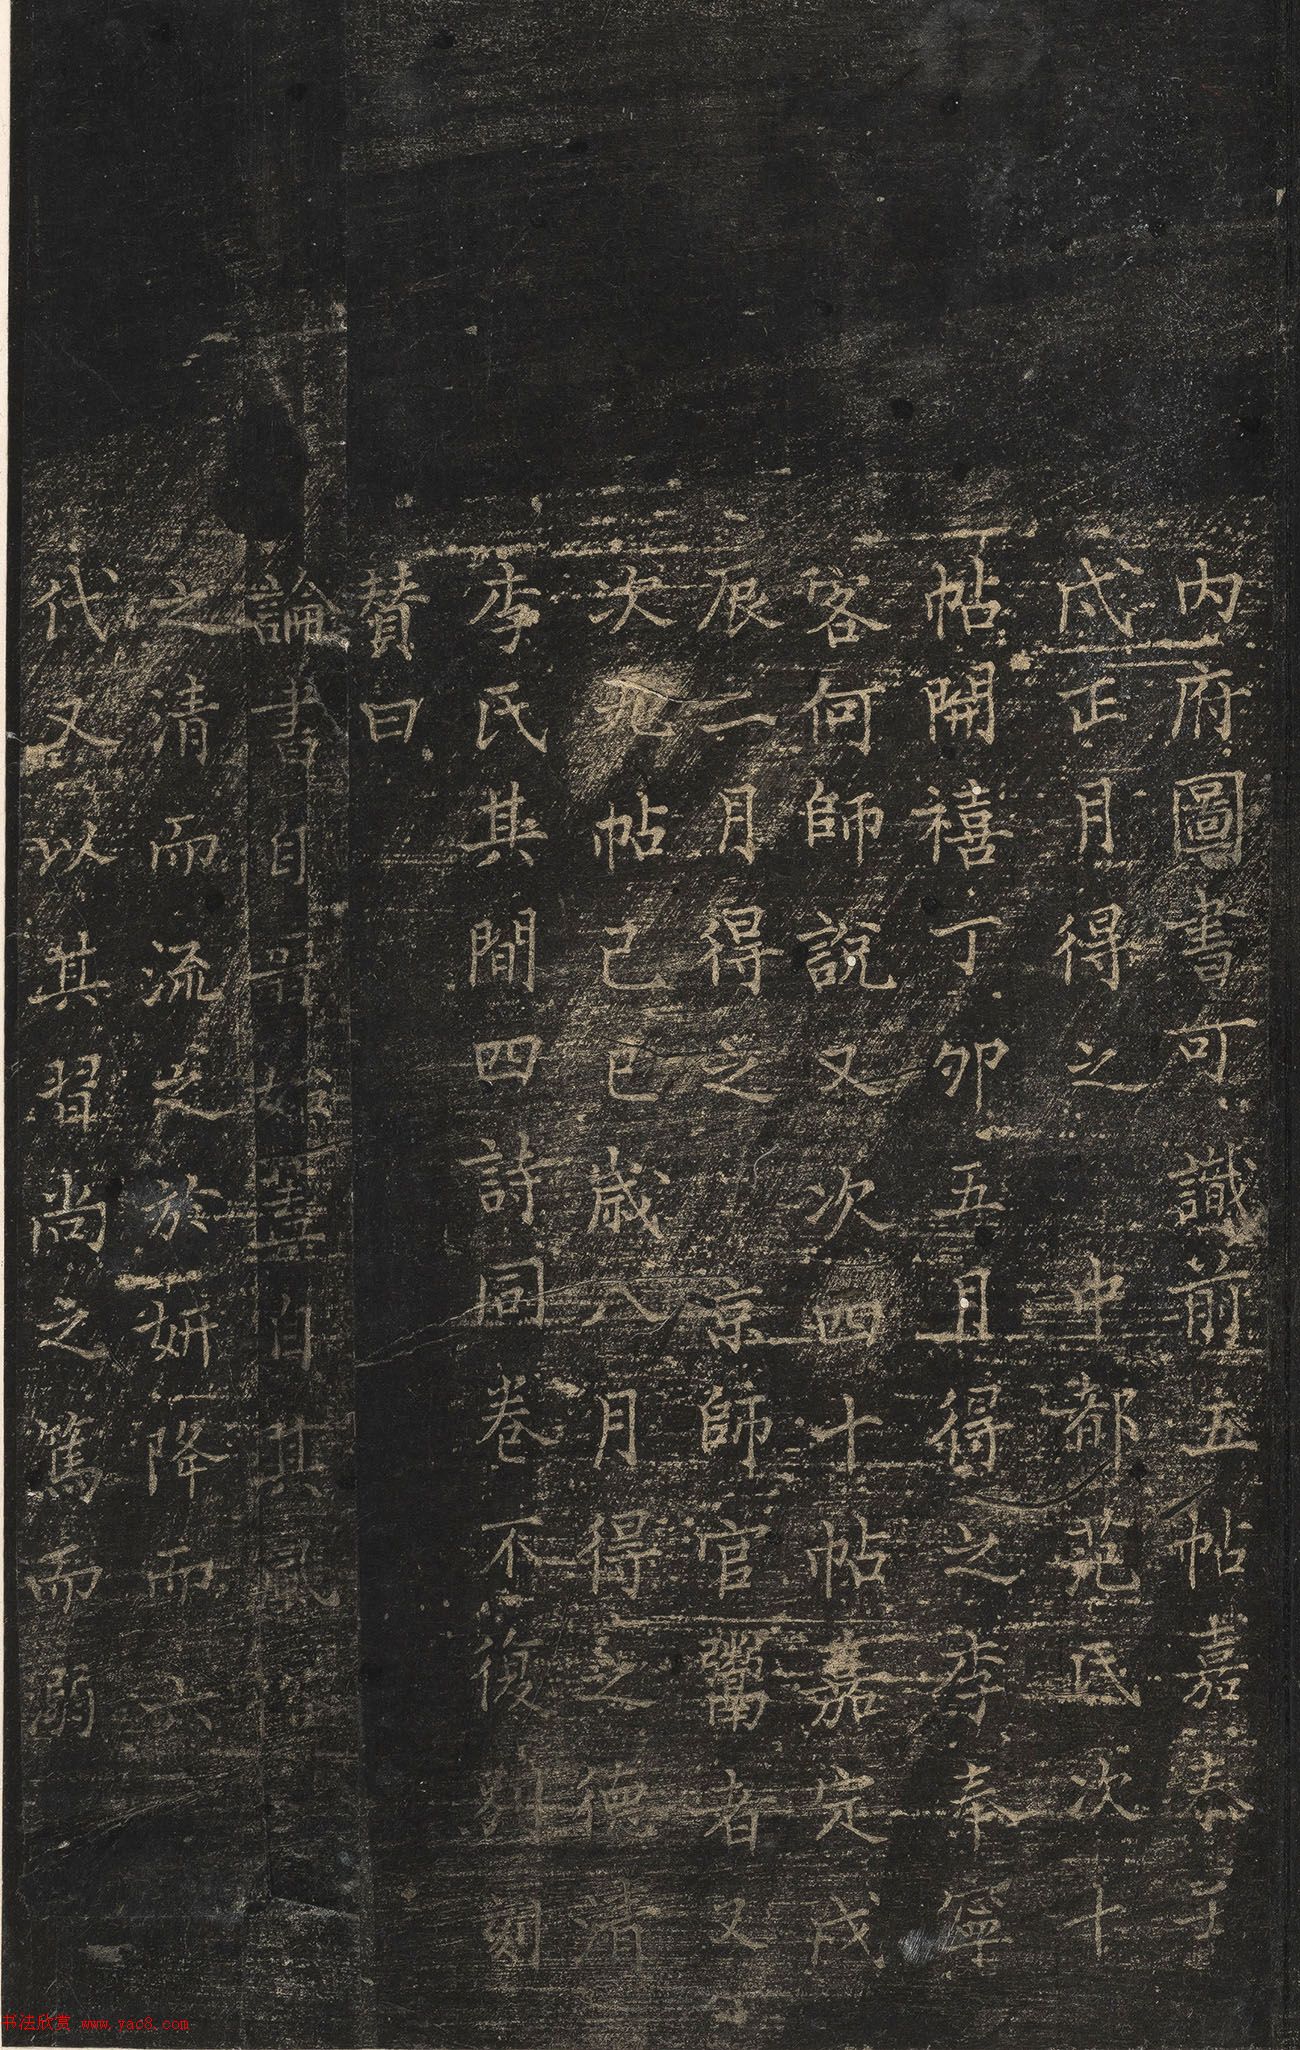 内府圖書可識前五帖嘉泰壬
戍正月得之中都范氏次十
帖開禧丁卯五月得之李奉寧
客何師說又次四十帖嘉定戊
辰二月得之京師官鬻者又
次九帖己巳歲八月得之德清
李氏其間四詩同卷不復別刻
贊曰
論書自晉始蓋自其風
之清而流之於妍降而六
代又以其習尚之篤而溺
书法欣赏 www.yac8.com